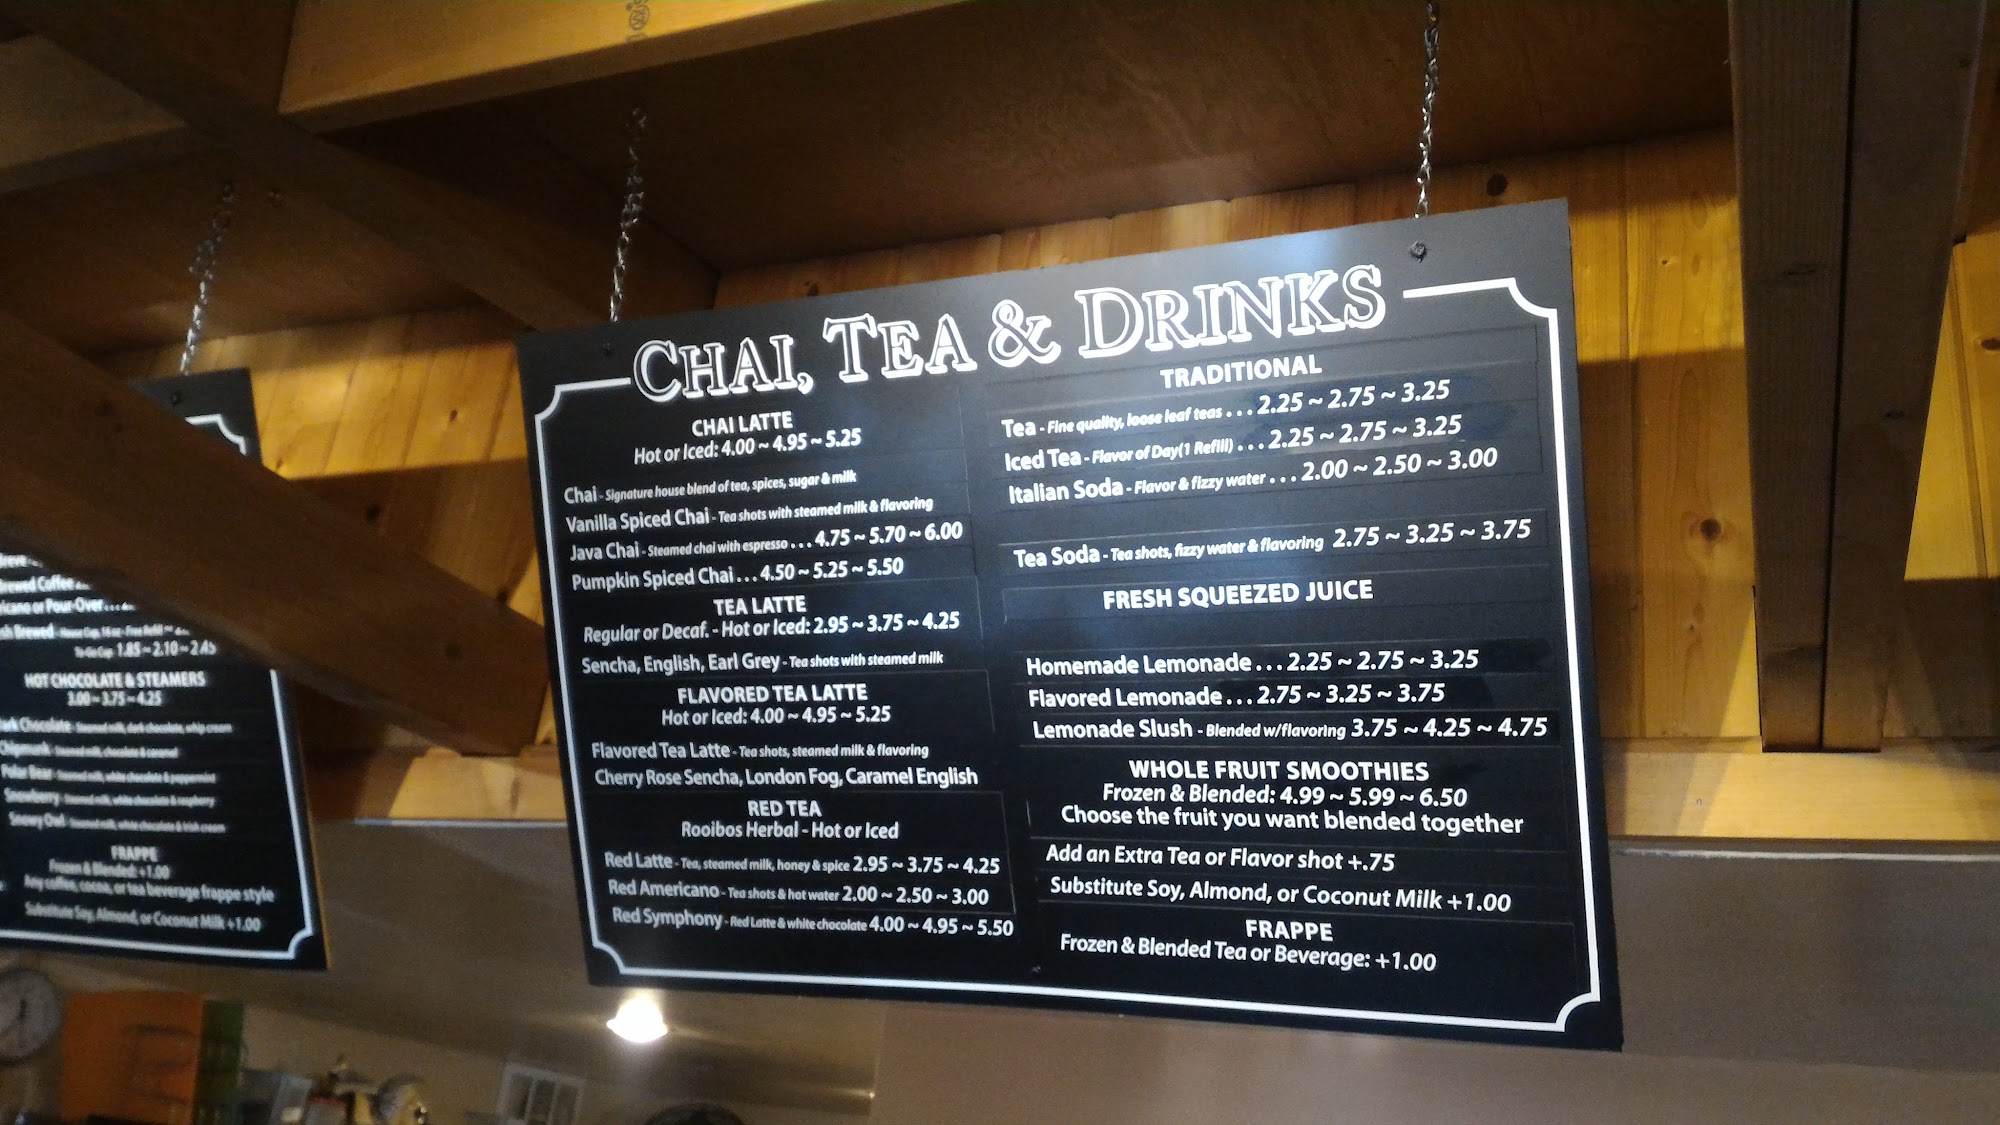 Brewed Coffee
Pour-Over...
Brewed
To-Go Cup 1.85 ~ 2.10 ~ 2.45
HOT CHOCOLATE & STEAMERS
3.00 ~ 3.75 ~ 4.25
Dark Chocolate - Steamed milk, dark chocolate, whip cream
Chipmunk - Steamed milk, chocolate & caramel
Polar Bear - Steamed milk, white chocolate & peppermint
Snowberry - Steamed milk, white chocolate & raspberry
Snowy Owl - Steamed milk, white chocolate & Irish cream
FRAPPE
Frozen & Blended: +1.00
Any coffee, cocoa, or tea beverage frappe style
Substitute Soy, Almond, or Coconut Milk +1.00
CHAI, TEA & DRINKS
CHAI LATTE
Hot or Iced: 4.00 ~ 4.95 ~ 5.25
Chai - Signature house blend of tea, spices, sugar & milk
Vanilla Spiced Chai - Tea shots with steamed milk & flavoring
Java Chai - Steamed chai with espresso ... 4.75 ~ 5.70 ~ 6.00
Pumpkin Spiced Chai ... 4.50 ~ 5.25 ~ 5.50
TEA LATTE
Regular or Decaf. - Hot or Iced: 2.95 ~ 3.75 ~ 4.25
Sencha, English, Earl Grey - Tea shots with steamed milk
FLAVORED TEA LATTE
Hot or Iced: 4.00 ~ 4.95 ~ 5.25
Flavored Tea Latte - Tea shots, steamed milk & flavoring
Cherry Rose Sencha, London Fog, Caramel English
RED TEA
Rooibos Herbal - Hot or Iced
Red Latte - Tea, steamed milk, honey & spice 2.95 ~ 3.75 ~ 4.25
Red Americano - Tea shots & hot water 2.00 ~ 2.50 ~ 3.00
Red Symphony - Red Latte & white chocolate 4.00 ~ 4.95 ~ 5.50
TRADITIONAL
Tea - Fine quality, loose leaf teas ... 2.25 ~ 2.75 ~ 3.25
Iced Tea - Flavor of Day(1 Refill) ... 2.25 ~ 2.75 ~ 3.25
Italian Soda - Flavor & fizzy water ... 2.00 ~ 2.50 ~ 3.00
Tea Soda - Tea shots, fizzy water & flavoring 2.75 ~ 3.25 ~ 3.75
FRESH SQUEEZED JUICE
Homemade Lemonade ... 2.25 ~ 2.75 ~ 3.25
Flavored Lemonade ... 2.75 ~ 3.25 ~ 3.75
Lemonade Slush - Blended w/flavoring 3.75 ~ 4.25 ~ 4.75
WHOLE FRUIT SMOOTHIES
Frozen & Blended: 4.99 ~ 5.99 ~ 6.50
Choose the fruit you want blended together
Add an Extra Tea or Flavor shot +.75
Substitute Soy, Almond, or Coconut Milk +1.00
FRAPPE
Frozen & Blended Tea or Beverage: +1.00